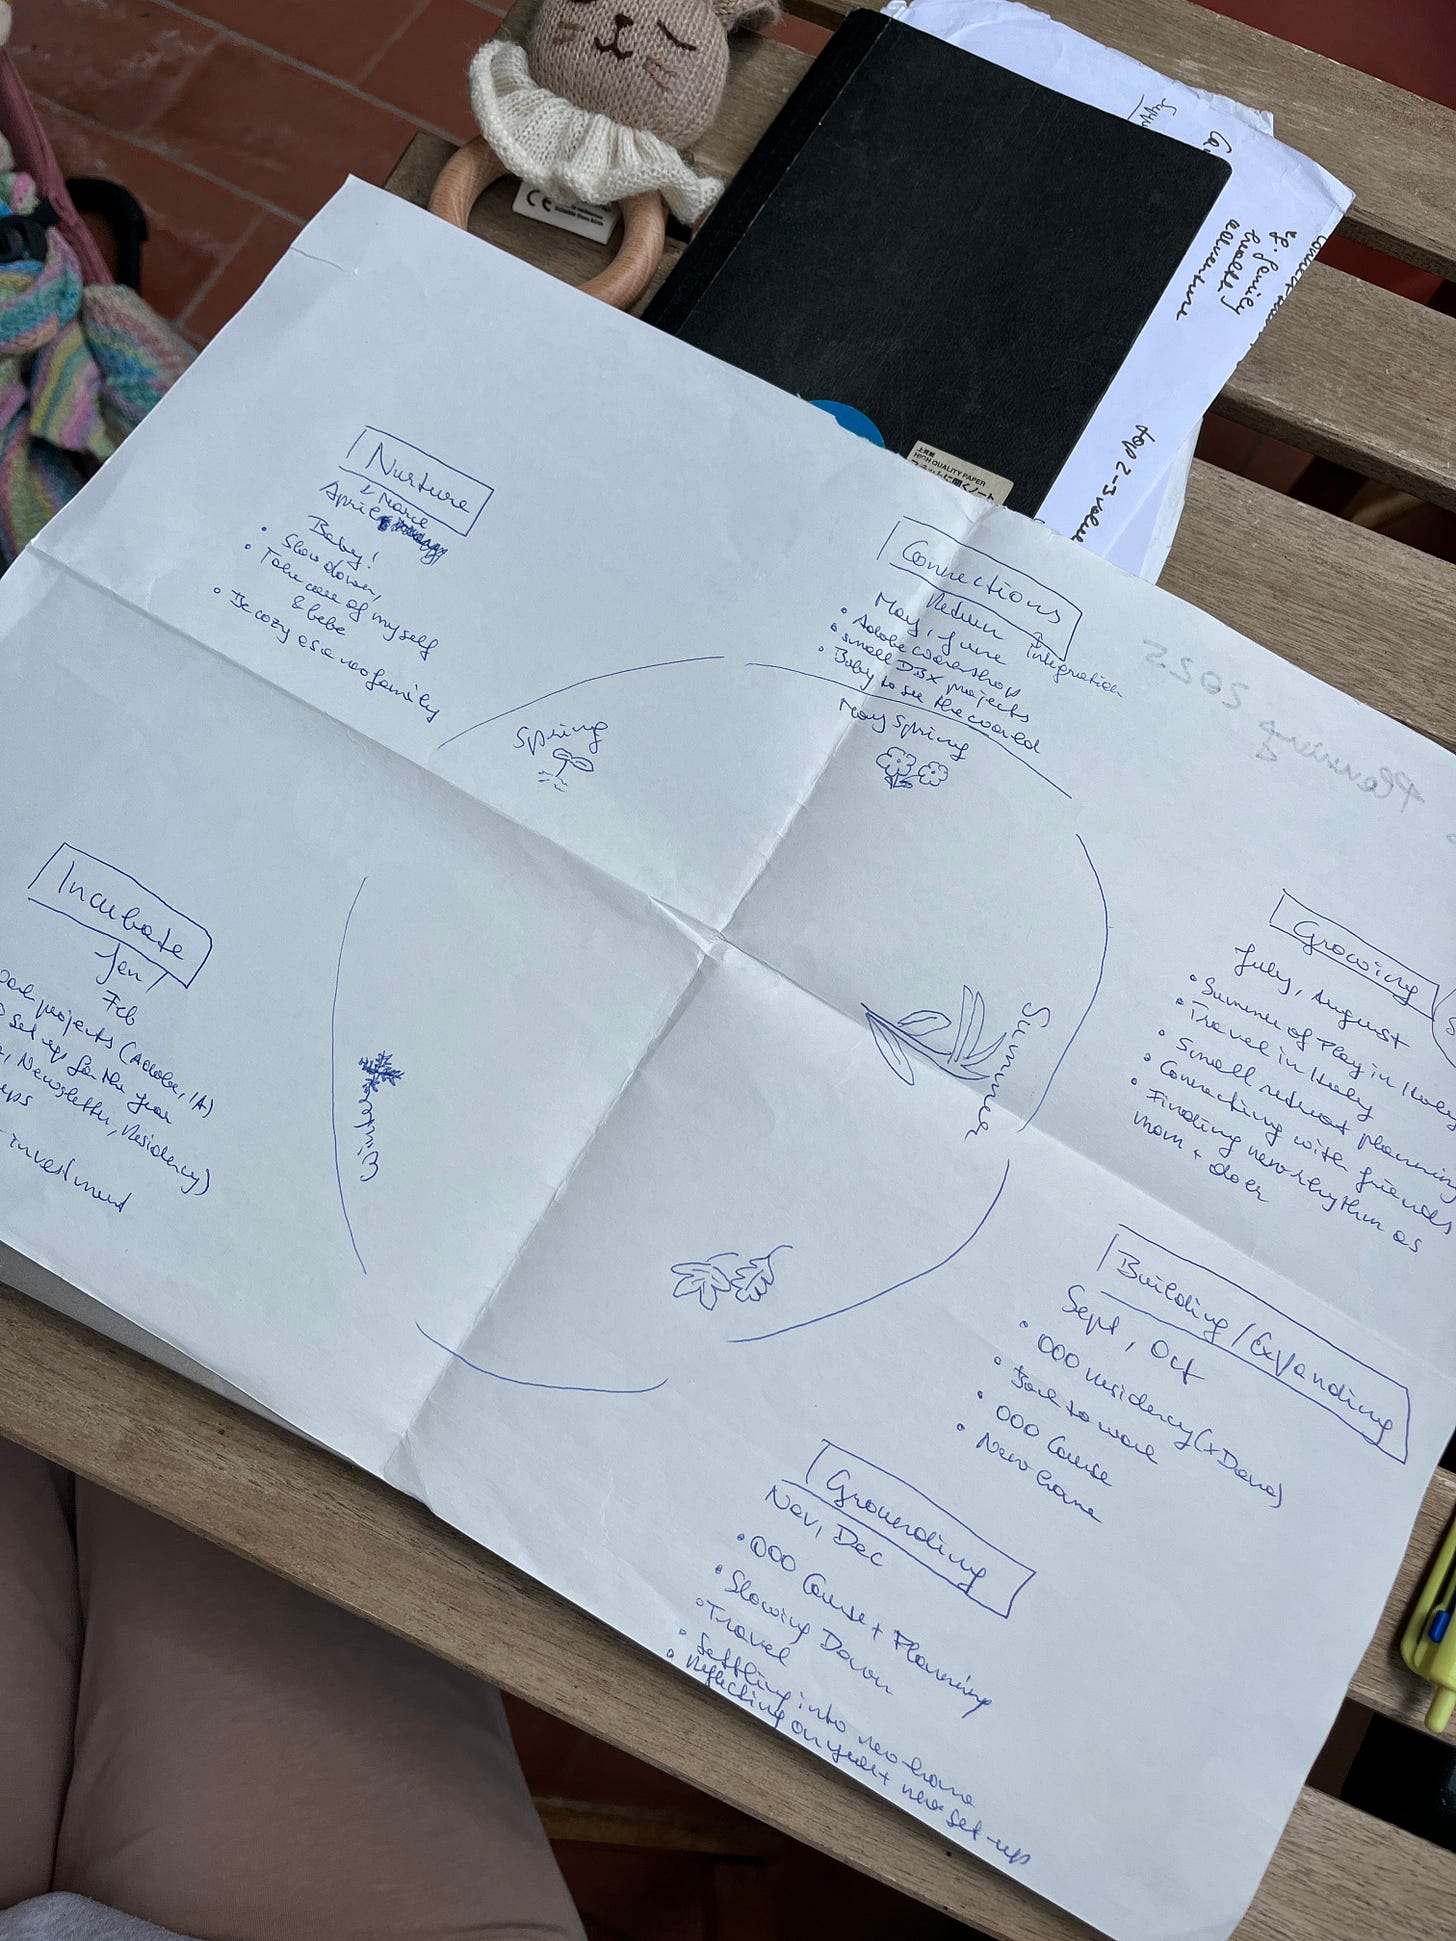 Nurture
& March
April
Baby!
• Slow down,
• Take care of myself
& bebe
• Be cozy as a new family
Connections
Return
May, June Integration
• Adobe workshop
• small DBX projects
• Baby to see the world
Spring
May Spring
Planning 2025
Incubate
Jan /
Feb
projects (Adobe, IA)
set up for the year
, Newsletter, Residency)
- investment
Winter
Summer
Growing
July, August
• Summer of Play in Italy
• Travel in Italy
• Small retreat planning
• Connecting with friends
• Finding new rhythm as
mom + doer
Building / Expanding
Sept, Oct
• OOO residency (x Dana)
• Back to work
• OOO Course
• New home
Grounding
Nov, Dec
• OOO Course + Planning
• Slowing Down
• Travel
• Settling into new home
• Reflecting on year + new set-up
HIGH QUALITY PAPER
eg. family
health
adventure
top 2-3 values
CE